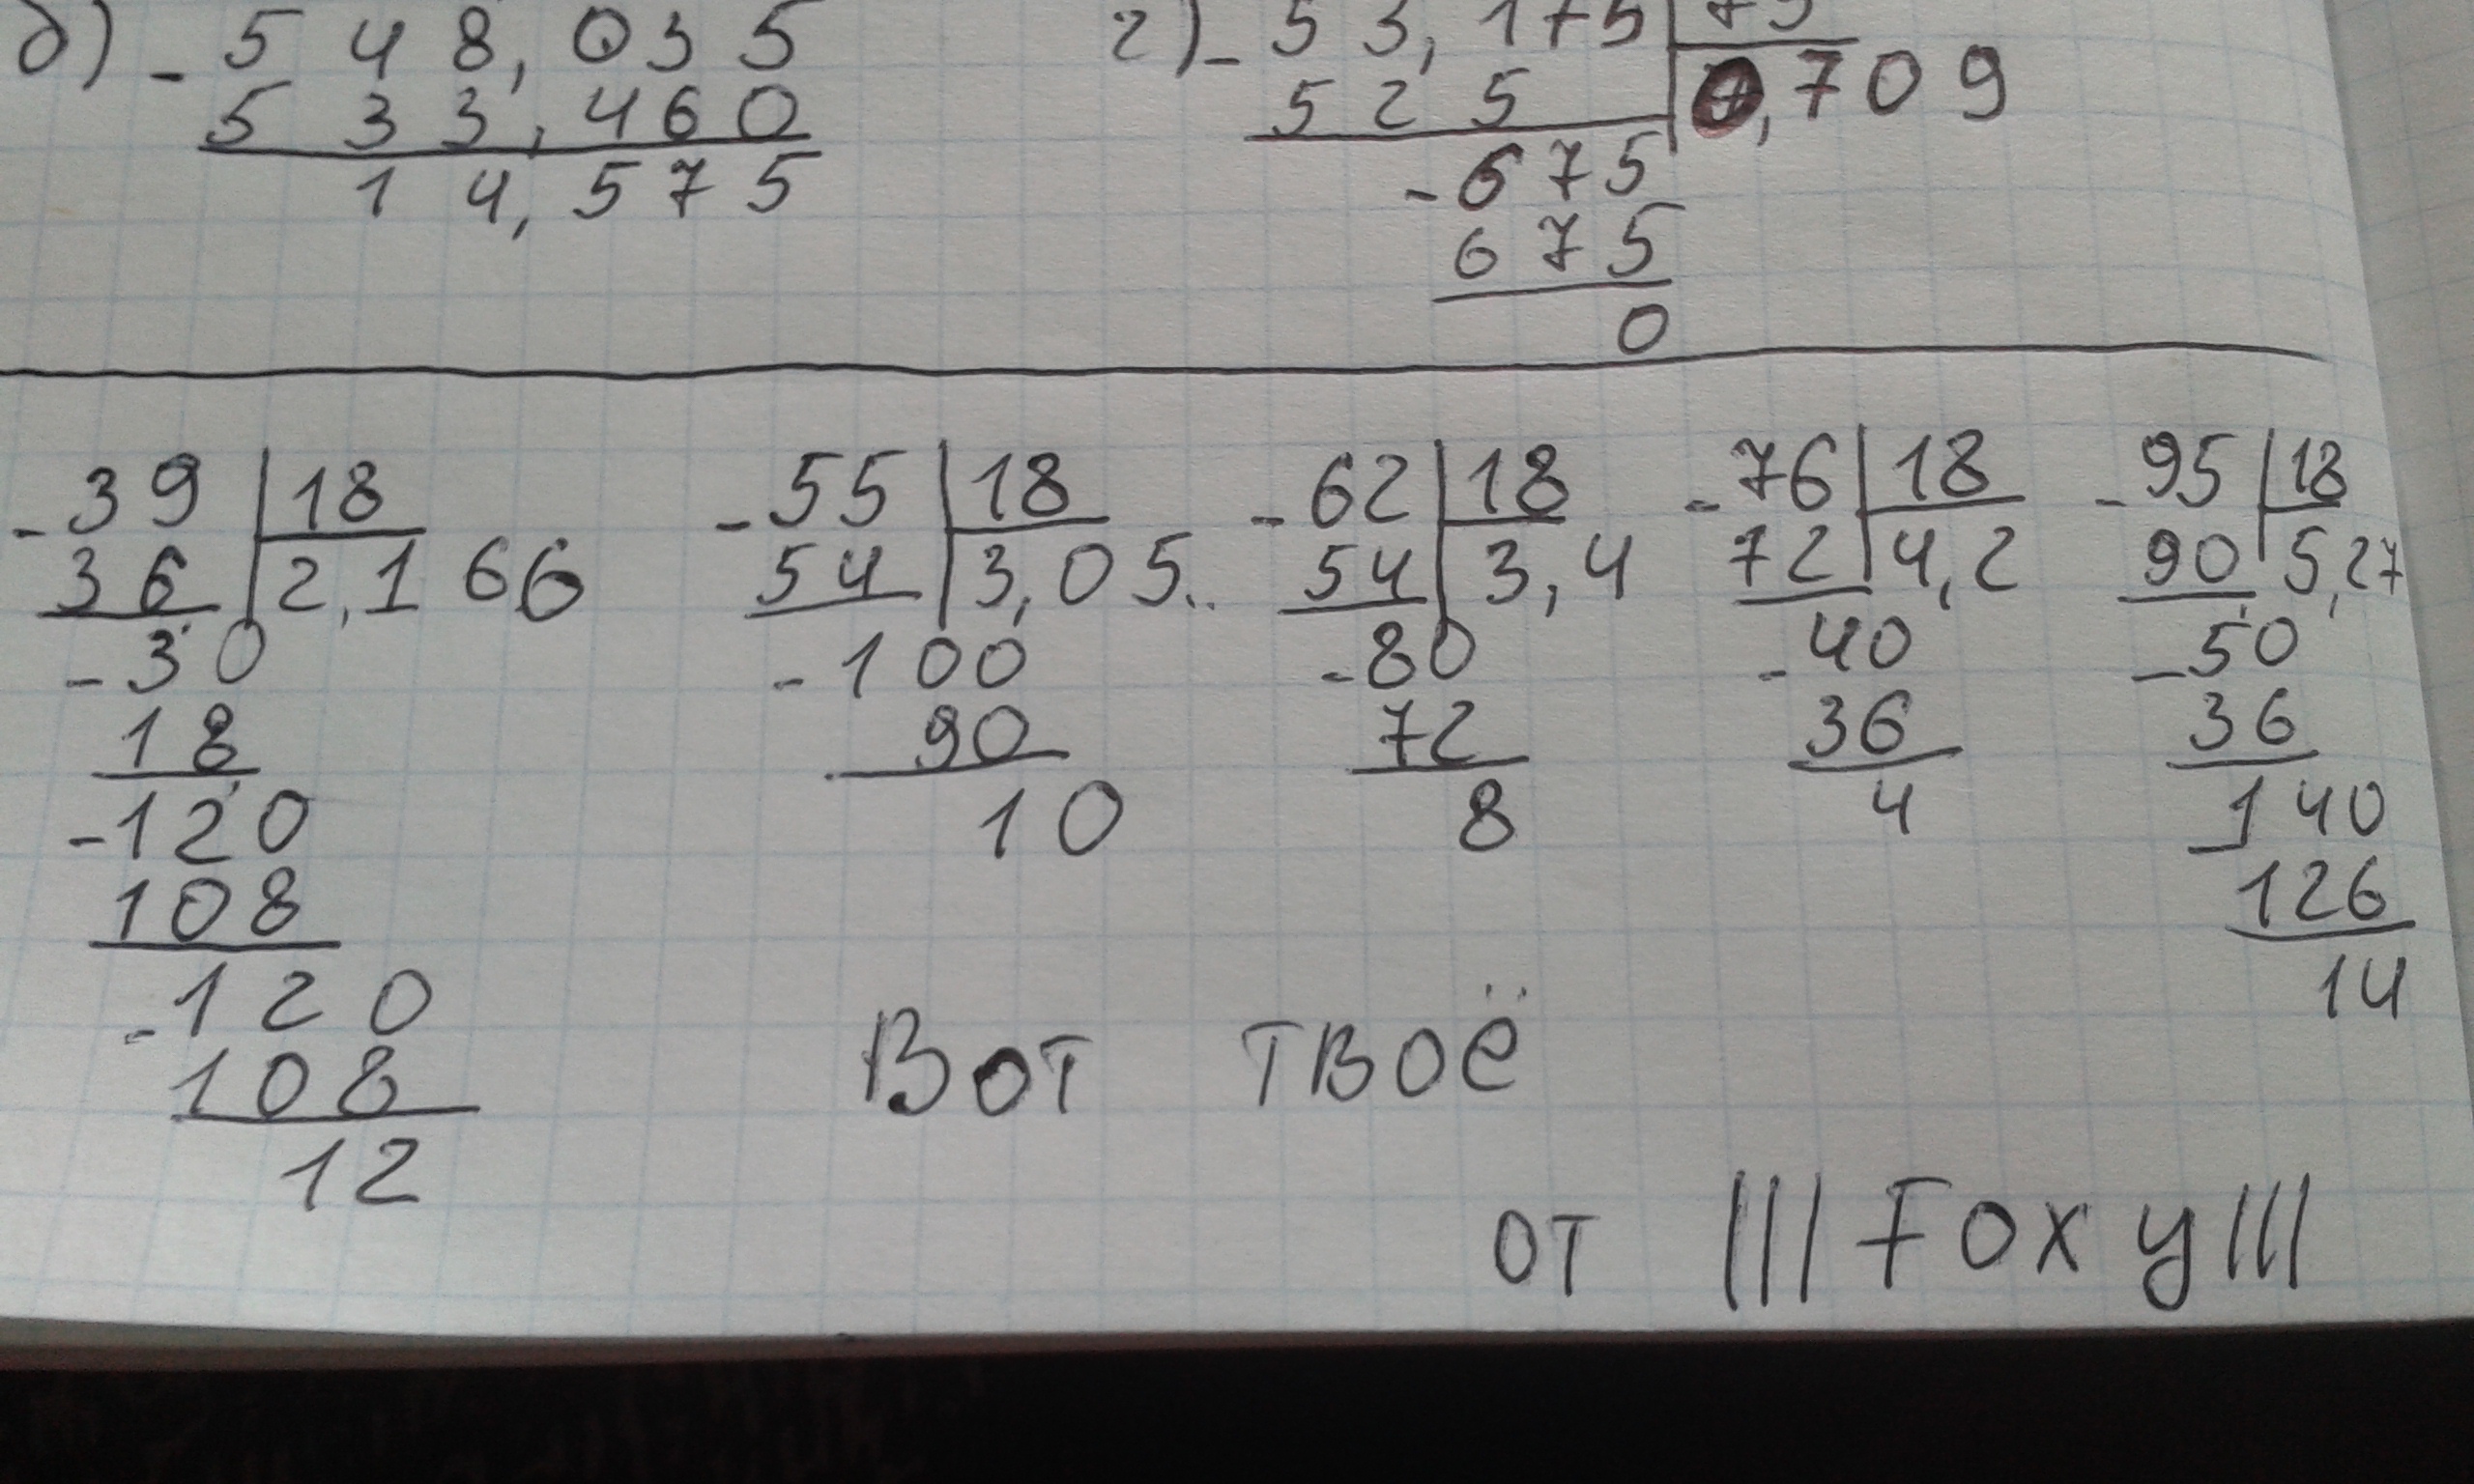 б) - 548,035
533,460
14,575
г) - 53,175 | 75
525 | 0,709
- 675
675
0
- 39 | 18
36 | 2,166
- 30
18
- 120
108
- 120
108
12
- 55 | 18
54 | 3,05..
- 100
90
10
- 62 | 18
54 | 3,4
- 80
72
8
- 76 | 18
72 | 4,2
- 40
36
4
- 95 | 18
90 | 5,27
- 50
36
- 140
126
14
Вот твоё
от |||Foxy|||